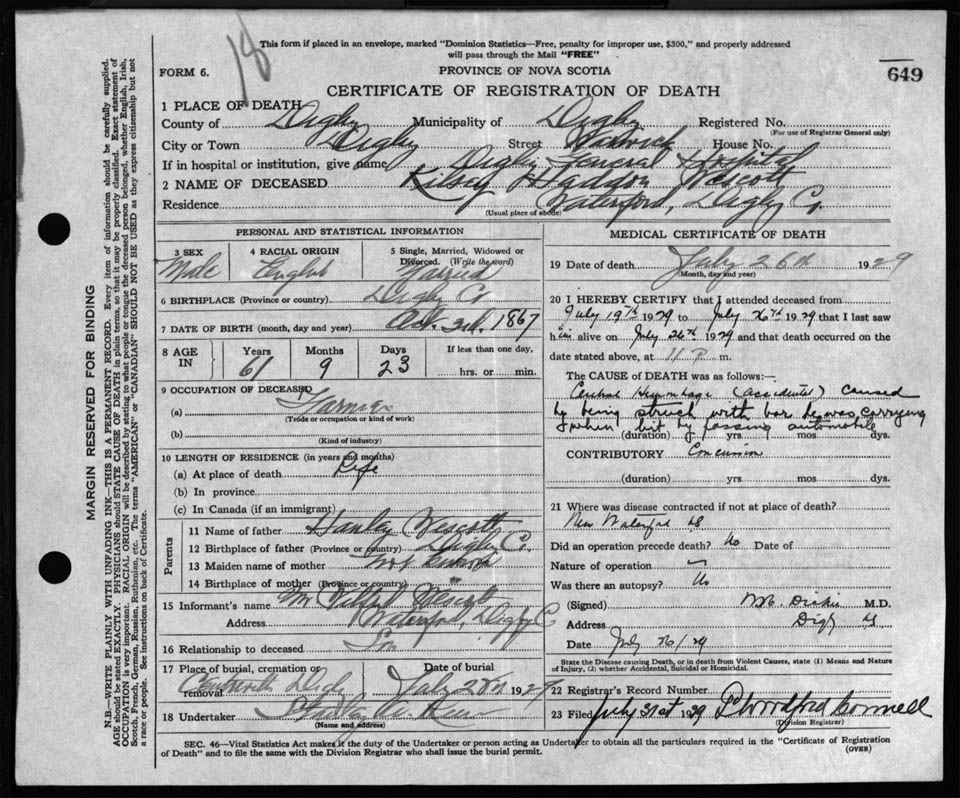 18
This form if placed in an envelope, marked "Dominion Statistics—Free, penalty for improper use, $300," and properly addressed
will pass through the Mail "FREE"
FORM 6.
PROVINCE OF NOVA SCOTIA
649
CERTIFICATE OF REGISTRATION OF DEATH
1 PLACE OF DEATH
County of Digby Municipality of Digby Registered No.
(For use of Registrar General only)
City or Town Digby Street Warwick House No.
If in hospital or institution, give name Digby General Hospital
2 NAME OF DECEASED Kilsey Haddon Wescott
Residence Waterford, Digby Co.
(Usual place of abode)
PERSONAL AND STATISTICAL INFORMATION
3 SEX Male
4 RACIAL ORIGIN English
5 Single, Married, Widowed or Divorced. (Write the word) Married
6 BIRTHPLACE (Province or country) Digby Co
7 DATE OF BIRTH (month, day and year) Oct. 3rd. 1867
8 AGE IN Years 61 Months 9 Days 23 If less than one day, hrs. or min.
9 OCCUPATION OF DECEASED
(a) Farmer
(Trade or occupation or kind of work)
(b)
(Kind of industry)
10 LENGTH OF RESIDENCE (in years and months)
(a) At place of death Life
(b) In province
(c) In Canada (if an immigrant)
Parents
11 Name of father Hanley Wescott
12 Birthplace of father (Province or country) Digby Co.
13 Maiden name of mother Not Known
14 Birthplace of mother (Province or country)
15 Informant's name Mr Wescott
Address Waterford, Digby Co
16 Relationship to deceased Son
17 Place of burial, cremation or removal Centreville Digby
Date of burial July 28th 1929
18 Undertaker
(Name and address)
MEDICAL CERTIFICATE OF DEATH
19 Date of death July 26th 1929
(Month, day and year)
20 I HEREBY CERTIFY that I attended deceased from
July 19th 1929 to July 26th 1929 that I last saw
him alive on July 26th 1929 and that death occurred on the
date stated above, at 11 P. m.
The CAUSE of DEATH was as follows:—
Cerebral Hemorrhage (accidental) caused
by being struck with bar he was carrying
when hit by passing automobile
(duration) yrs mos dys.
CONTRIBUTORY Concussion
(duration) yrs mos dys.
21 Where was disease contracted if not at place of death?
Near Waterford NS
Did an operation precede death? No Date of
Nature of operation
Was there an autopsy? No
(Signed) Dickie M.D.
Address Digby NS
Date July 26/29
State the Disease causing Death, or in death from Violent Causes, state (1) Means and Nature
of Injury, (2) whether Accidental, Suicidal or Homicidal.
22 Registrar's Record Number
23 Filed July 31st 1929 Woodford Connell
(Division Registrar)
SEC. 46—Vital Statistics Act makes it the duty of the Undertaker or person acting as Undertaker to obtain all the particulars required in the "Certificate of Registration
of Death" and to file the same with the Division Registrar who shall issue the burial permit.
(OVER)
MARGIN RESERVED FOR BINDING
N.B.—WRITE PLAINLY WITH UNFADING INK—THIS IS A PERMANENT RECORD. Every item of information should be carefully supplied.
AGE should be stated EXACTLY. PHYSICIANS should STATE CAUSE OF DEATH in plain terms, so that it may be properly classified. Exact statement of
OCCUPATION is very important. RACIAL ORIGIN will be described by stating to what people or tongue the deceased person belonged, whether English, Irish,
Scotch, French, German, Russian, Ruthenian, etc. The terms "AMERICAN" or "CANADIAN" SHOULD NOT BE USED as they express citizenship but not
a race or people. See instructions on back of Certificate.